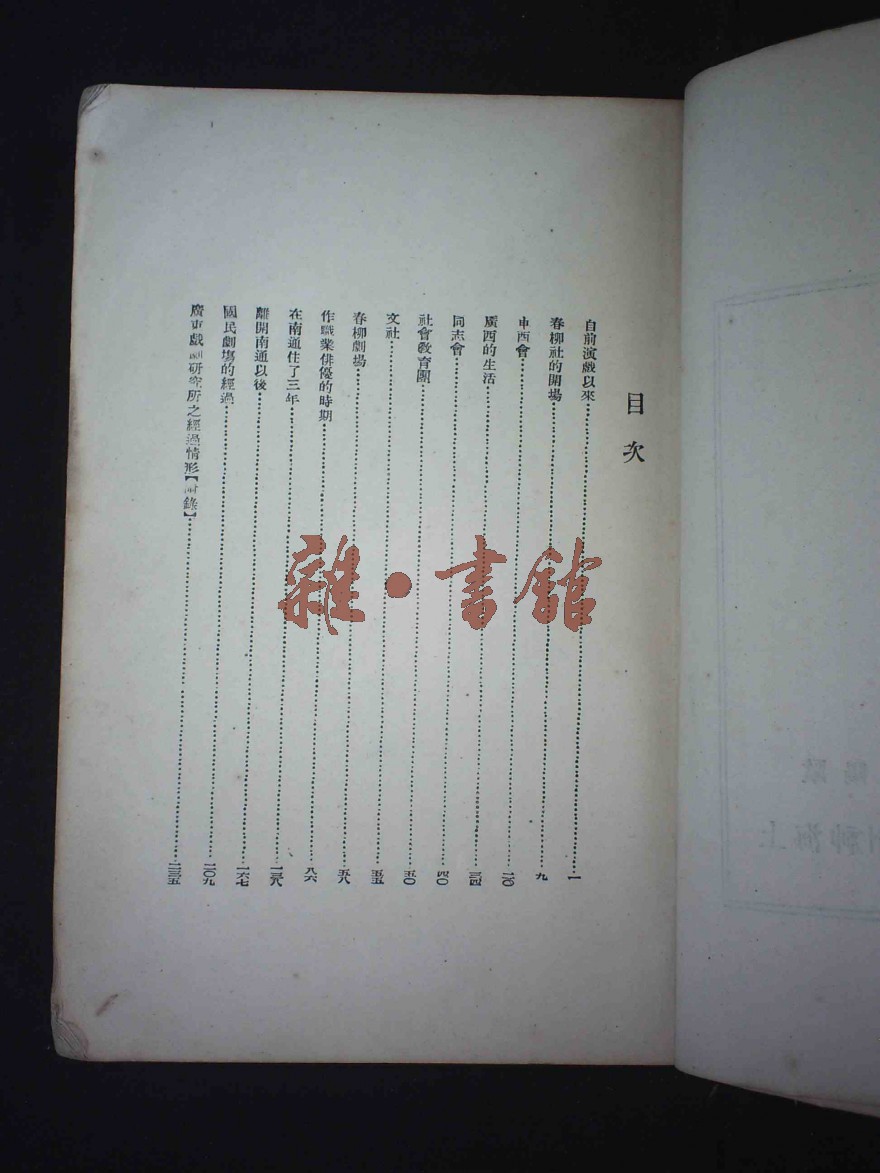 目次
自前演戲以來⋯⋯一
春柳社的開場⋯⋯九
申酉會⋯⋯二〇
廣西的生活⋯⋯三四
同志會⋯⋯四〇
社會敎育團⋯⋯五〇
文社⋯⋯五五
春柳劇場⋯⋯五八
作職業俳優的時期⋯⋯八六
在南通住了三年⋯⋯一三八
離開南通以後⋯⋯一六七
國民劇場的經過⋯⋯二〇九
廣東戲劇研究所之經過情形【附錄】⋯⋯二三五
雜·書館